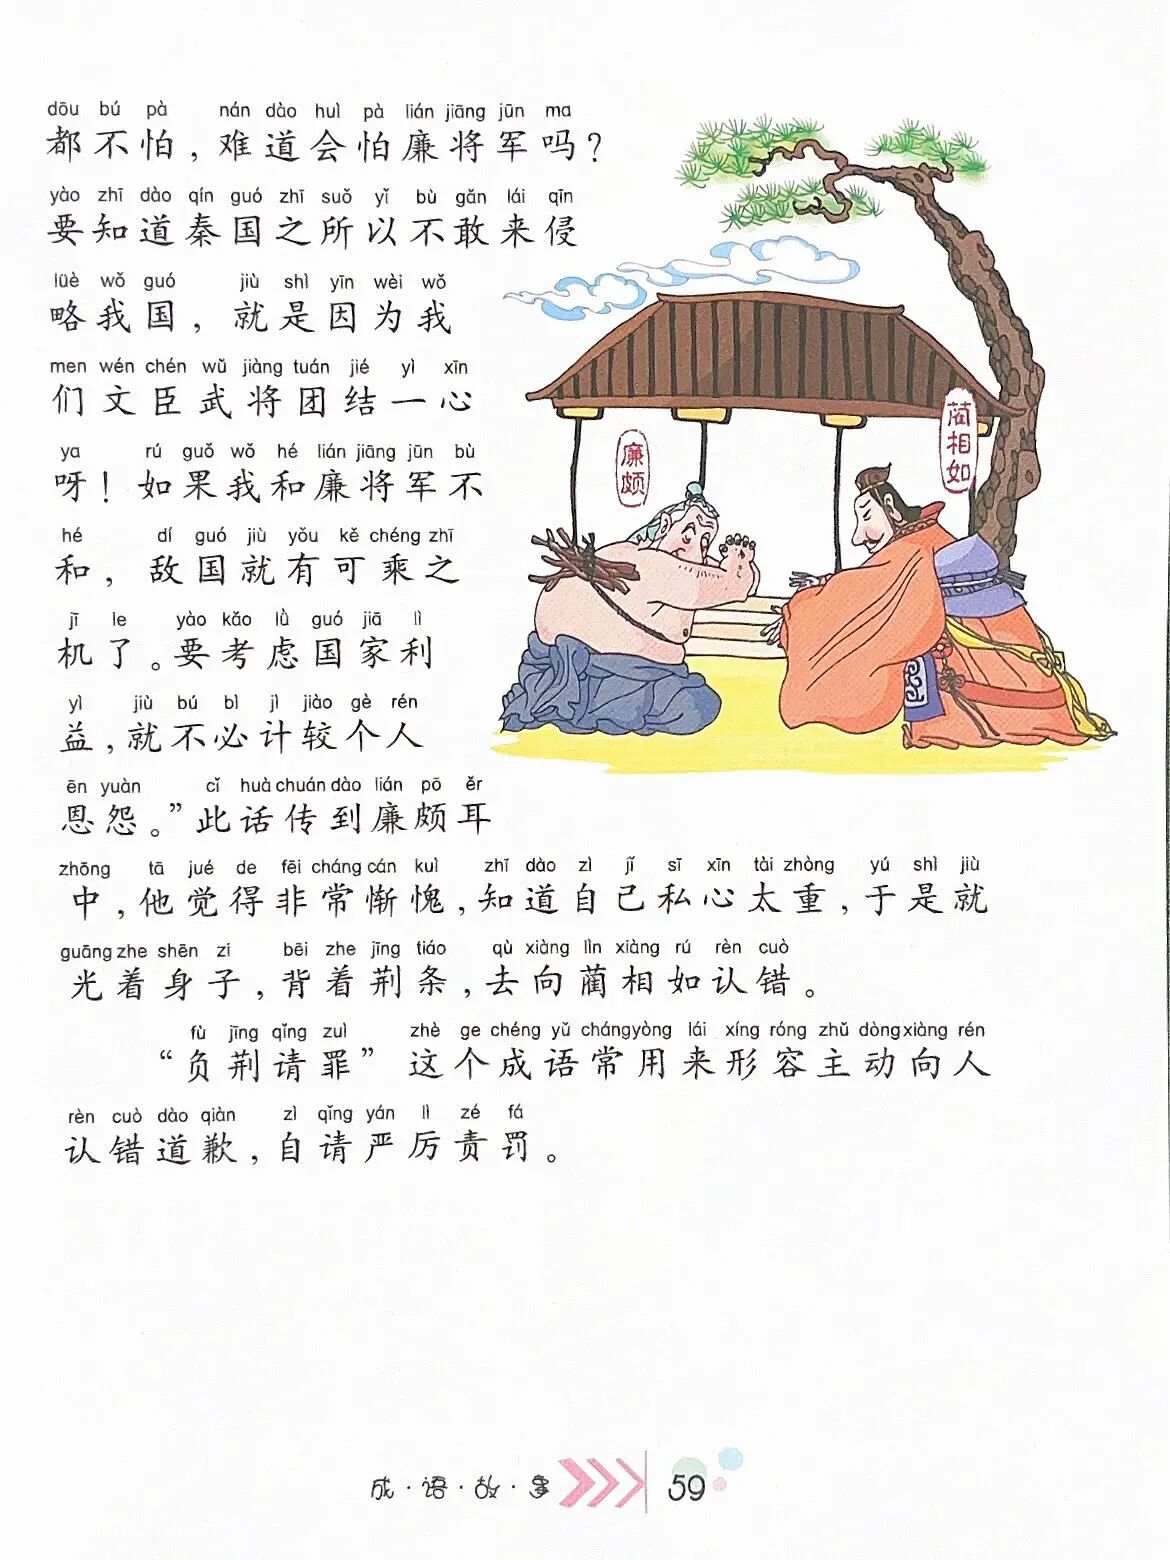 dōu bú pà nán dào huì pà lián jiāng jūn ma
都不怕，难道会怕廉将军吗？
yào zhī dào qín guó zhī suǒ yǐ bù gǎn lái qīn
要知道秦国之所以不敢来侵
lüè wǒ guó jiù shì yīn wèi wǒ
略我国，就是因为我
men wén chén wǔ jiàng tuán jié yì xīn
们文臣武将团结一心
ya rú guǒ wǒ hé lián jiāng jūn bù
呀！如果我和廉将军不
hé dí guó jiù yǒu kě chéng zhī
和，敌国就有可乘之
jī le yào kǎo lǜ guó jiā lì
机了。要考虑国家利
yì jiù bú bì jì jiào gè rén
益，就不必计较个人
ēn yuàn cǐ huà chuán dào lián pō ěr
恩怨。”此话传到廉颇耳
zhōng tā jué de fēi cháng cán kuì zhī dào zì jǐ sī xīn tài zhòng yú shì jiù
中，他觉得非常惭愧，知道自己私心太重，于是就
guāng zhe shēn zi bēi zhe jīng tiáo qù xiàng lìn xiàng rú rèn cuò
光着身子，背着荆条，去向蔺相如认错。
fù jīng qǐng zuì zhè ge chéng yǔ cháng yòng lái xíng róng zhǔ dòng xiàng rén
“负荆请罪”这个成语常用来形容主动向人
rèn cuò dào qiàn zì qǐng yán lì zé fá
认错道歉，自请严厉责罚。
廉颇
蔺相如
成·语·故·事 59